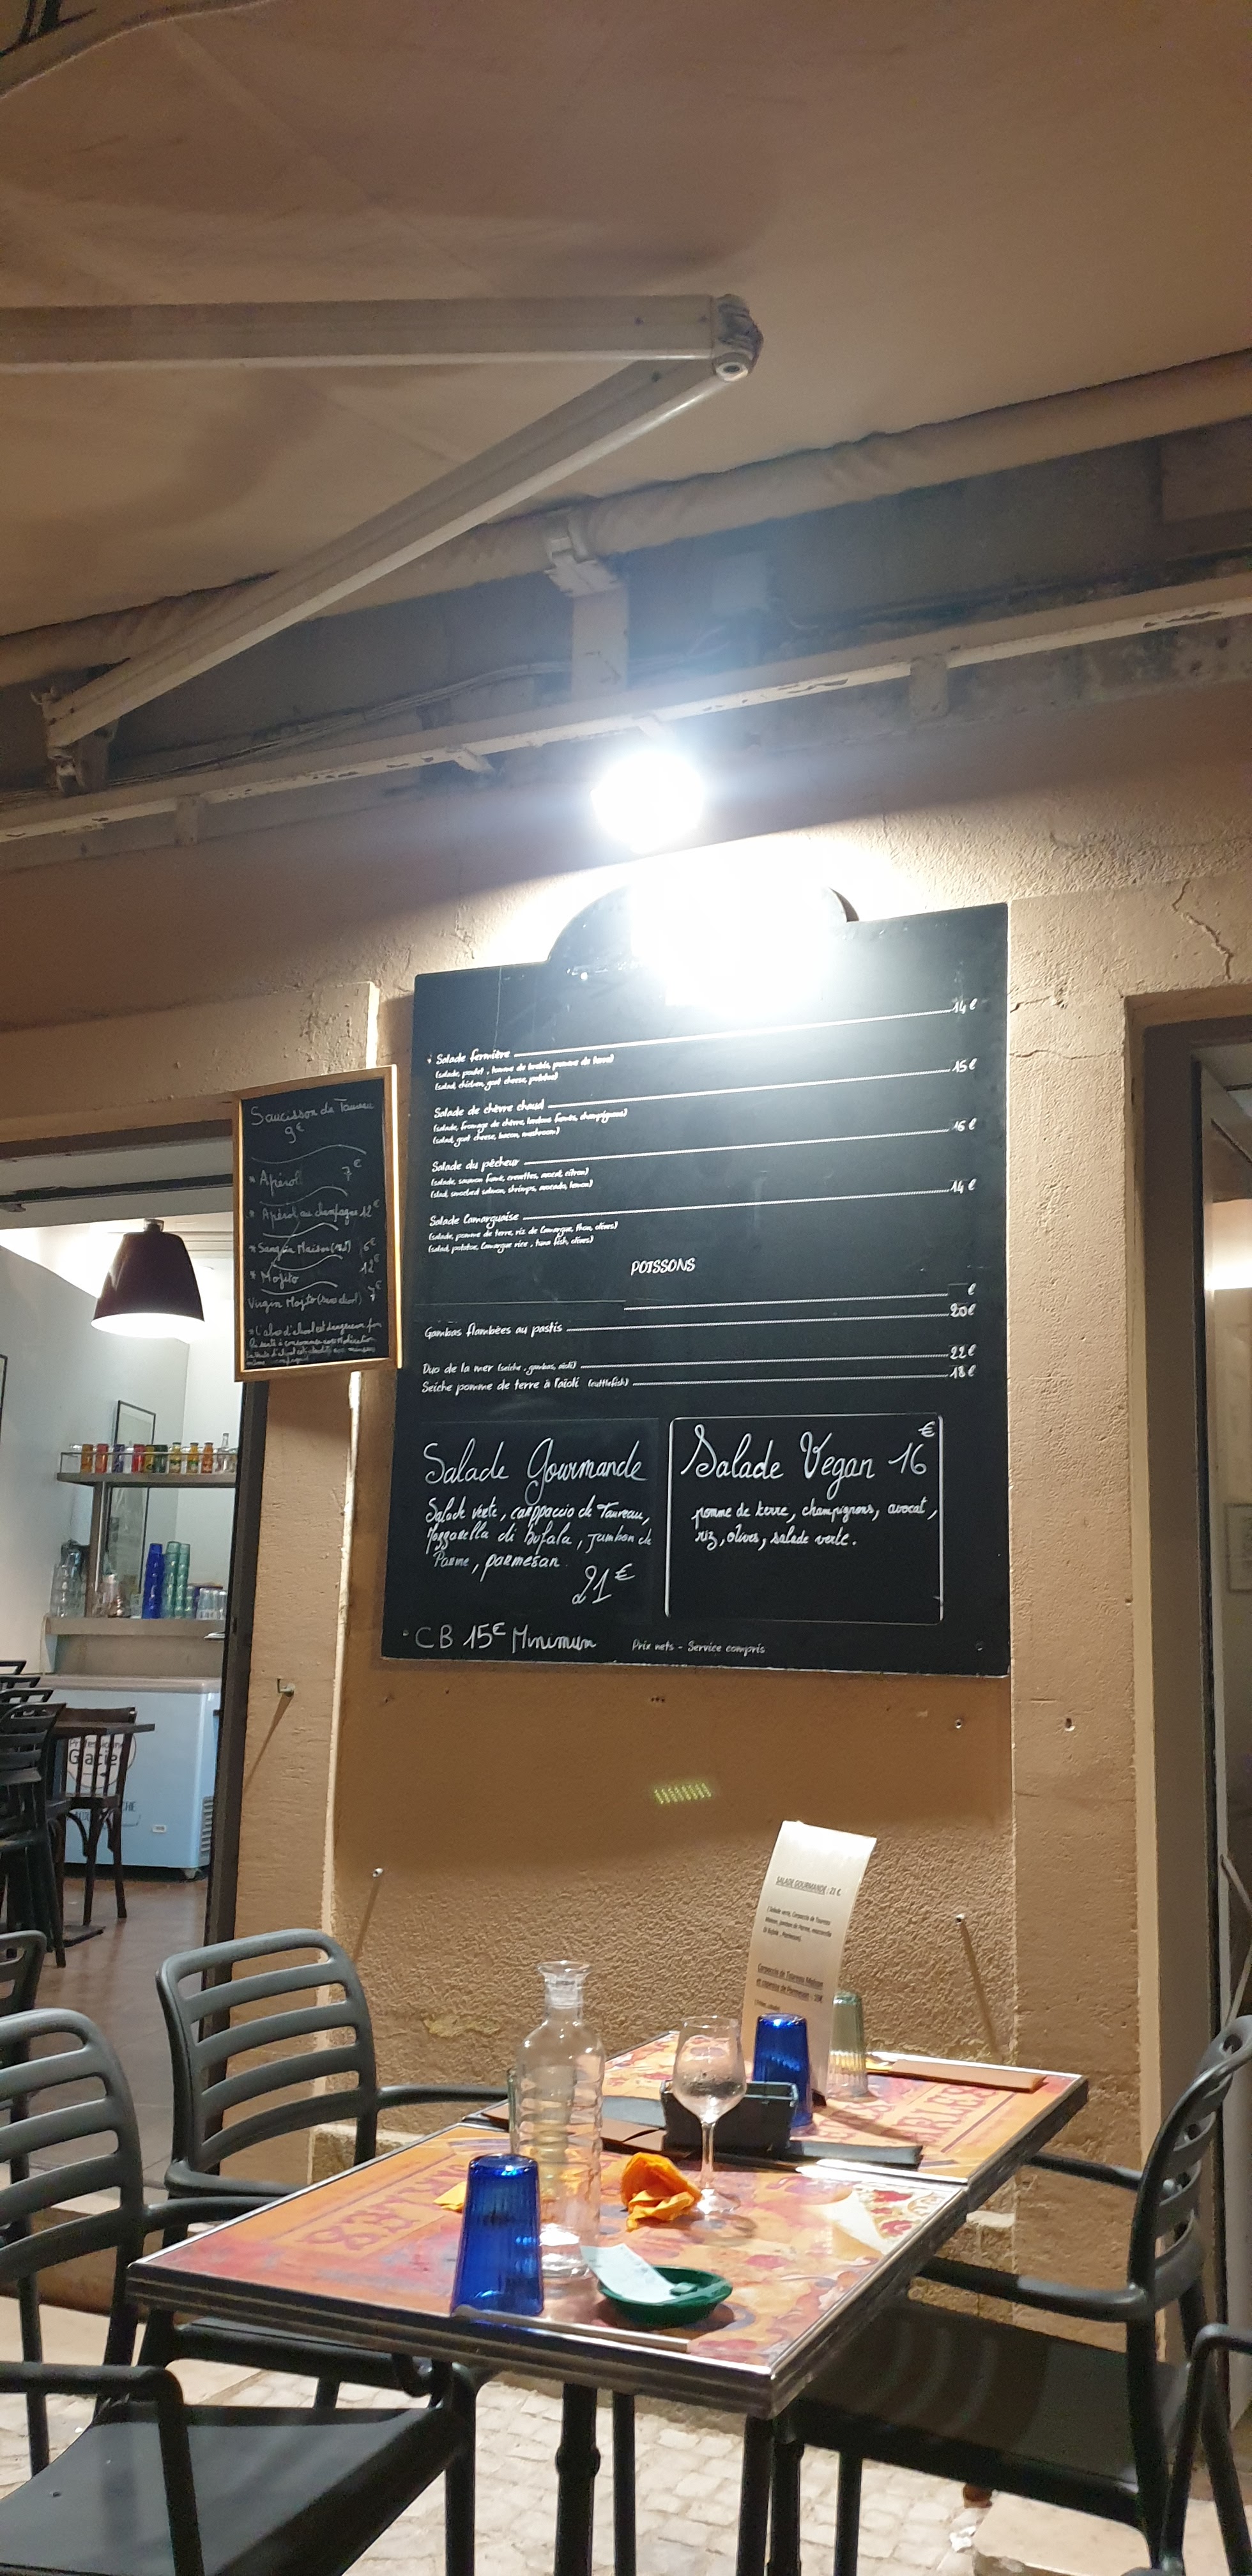 Saucisson de Taureau
9€
* Apérol 7€
* Apérol au champagne 12€
* Sangria Maison 6€
* Mojito 12€
Virgin Mojito (sans alcool) 7€
* L'abus d'alcool est dangereux pour
la santé à consommer avec modération
14€
Salade fermière
(salade, poulet, tomme de brebis, pomme de terre)
(salad, chicken, goat cheese, potatoe)
15€
Salade de chèvre chaud
(salade, fromage de chèvre, lardons fumés, champignons)
(salad, goat cheese, bacon, mushroom)
16€
Salade du pêcheur
(salade, saumon fumé, crevettes, avocat, citron)
(salad, smocked salmon, shrimps, avocado, lemon)
14€
Salade Camarguaise
(salade, pomme de terre, riz de Camargue, thon, olives)
(salad, potatoe, Camargue rice, tuna fish, olives)
POISSONS
€
Gambas flambées au pastis 20€
Duo de la mer (seiche, gambas, aïoli) 22€
Seiche pomme de terre à l'aïoli (cuttlefish) 18€
Salade Gourmande
Salade verte, carppaccio de Taureau,
Mozzarella di bufala, Jambon de
Parme, parmesan
21€
Salade Vegan 16€
pomme de terre, champignons, avocat,
riz, olives, salade verte.
CB 15€ Minimum
Prix nets - Service compris
Glacier
SALADE GOURMANDE : 21 €
(Salade verte, Carpaccio de Taureau
Maison, jambon de Parme, mozzarella
Di Bufala, Parmesan)
Carpaccio de Taureau Maison
et copeaux de Parmesan : 19€
ARLES